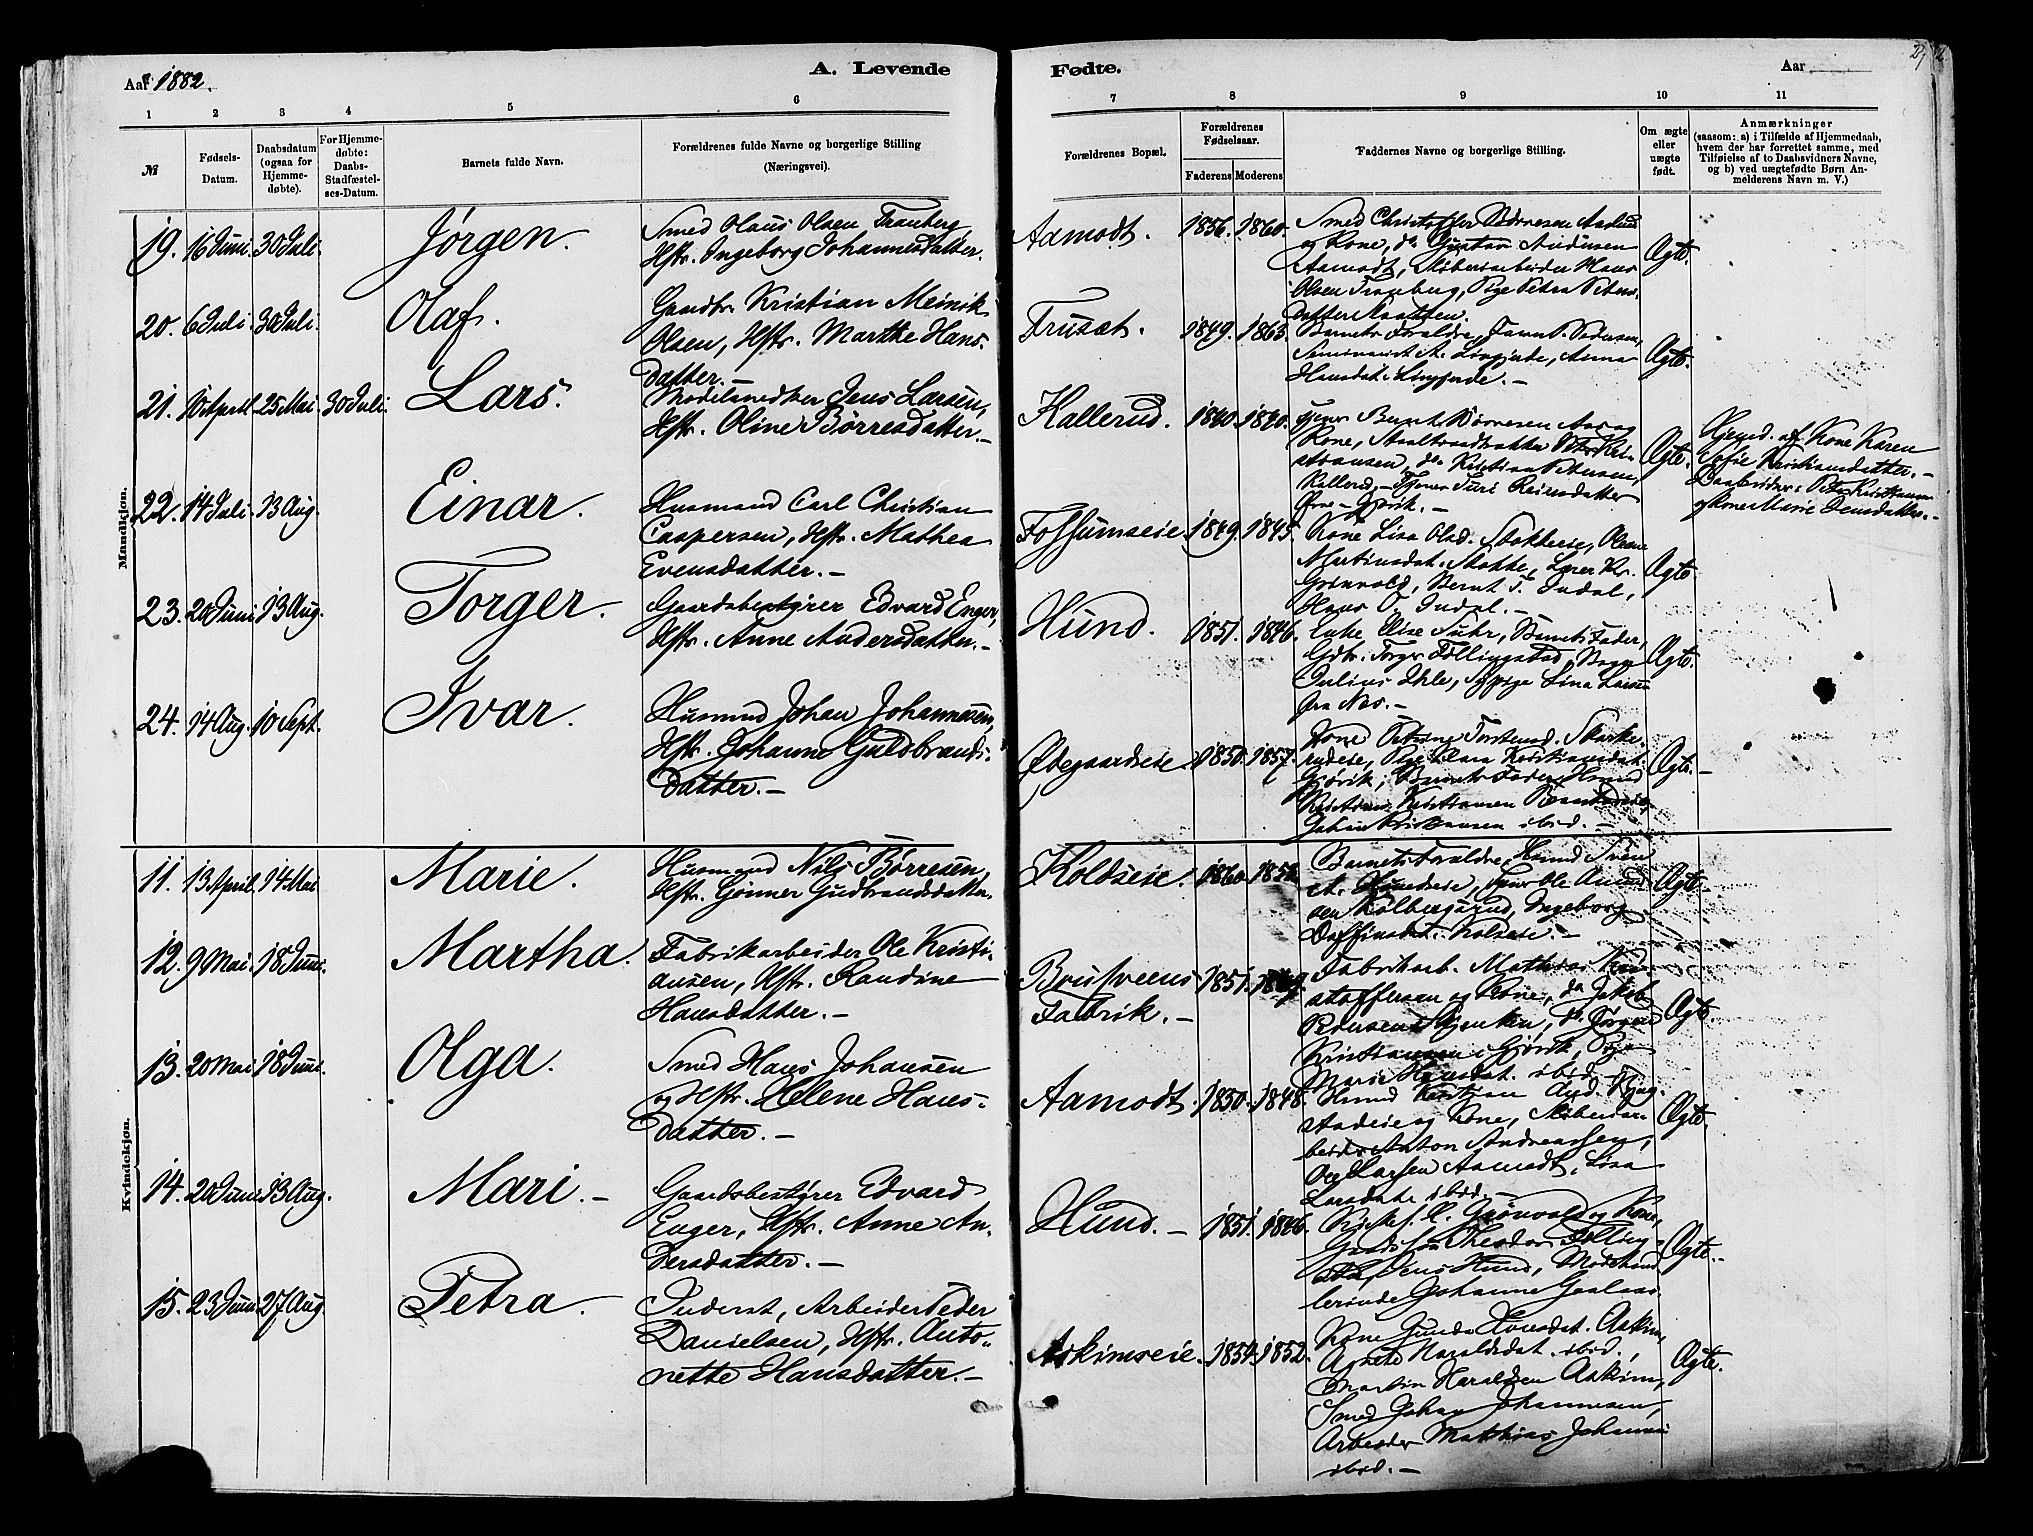 Aar 1882.
A. Levende
Fødte.
Aar
1 2 3 4 5 6 7 8 9 10 11
№
Fødsels-
Datum.
Daabsdatum
(ogsaa for
Hjemme-
døbte).
For Hjemme-
døbte:
Daabs-
Stadfæstel-
ses-Datum.
Barnets fulde Navn.
Forældrenes fulde Navne og borgerlige Stilling
(Næringsvei).
Forældrenes Bopæl.
Forældrenes
Fødselsaar.
Faderens Moderens
Faddernes Navne og borgerlige Stilling.
Om ægte
eller
uægte
født.
Anmærkninger
(saasom: a) i Tilfælde af Hjemmedaab,
hvem der har forrettet samme, med
Tilføielse af to Daabsvidners Navne,
og b) ved uægtefødte Børn An-
melderens Navn m. V.)
Mandkjøn.
19. 16 Juni 30 Juli. Jørgen.
Smed Olaus Olsen Tranberg
Hstr. Ingeborg Johannesdatter.
Aamodt. 1856. 1860.
Smed Christoffer
og Kone, do Gustav Andersen
Aamodt, Støberiarbeider Hans
Olsen Tranberg, Pige Petra Peters-
datter
Ægte.
20. 6 Juli 30 Juli. Olaf.
Gaardbr. Kristian Meinik
Olsen, Hstr. Marthe Hans-
datter. —
Trusæt. 1849. 1863.
Barnets Forældre,
Seminarist
Hansdat.
Ægte.
21. 10 April 25 Mai 30 Juli. Lars.
Modelsnedker Jens Larsen,
Hstr. Oline Børresdatter. —
Kallerud. 1840. 1840.
Bernt Børresen Aas og
Kone, Staaltraadtrækker Peter Kri-
stiansen, do Kristian Petersen,
Kallerud, — Tjener Turi Reiersdatter
Gjøvik. —
Ægte.
Hjemd. af Kone Karen
Sofie Kristiansdatter. —
Daabsvidner: Peter Kristiansen
og Kone Marie Jensdatter. —
22. 14 Juli 13 Aug. Einar.
Husmand Carl Christian
Caspersen, Hstr. Mathea
Evensdatter. —
Fossumseie. 1849. 1845.
Kone Lisa Olsd. Stokkeeie, Oline
Martinsdat. Stokke, Lærer Kr.
Grønvold, Bernt T. Indal,
Hans O. Indal. —
Ægte.
23. 20 Juni 13 Aug. Torger.
Gaardsbestyrer Edvard Enger,
Hstr. Anne Andersdatter. —
Hund. 1851. 1846.
Enke Elise Suhr, Barnets Fader,
Gdbr. TorgerFøllingstad,
Julius Ihle, Sypige Lina Larsen
fra Næs. —
Ægte.
24. 14 Aug. 10 Sept. Ivar.
Husmand Johan Johannesen,
Hstr. Johanne Guldbrands-
datter. —
Øvegaardseie. 1850. 1857.
Kone Petrine Torstensd. Skirke-
rudeie, Pige Klara Kristiansdat.
Gjøvik, Barnets Fader, Husmd
Kristian Kristiansen
Johan Kristiansen ibid. —
Ægte. —
Kvindekjøn.
11. 13 April 14 Mai Marie.
Husmand Nils Børresen,
Hstr. Gunner Gudbrandsdatter.
Koldseie. 1860. 1852.
Barnets Forældre, Husmd
Ole Amund-
sen Kolbergsrud, Ingeborg
Daffinsdat. Koldseie. —
Ægte.
12. 9 Mai. 18 Juni. Martha.
Fabrikarbeider Ole Kristi-
ansen, Hstr. Randine
Hansdatter. —
Brusveens
Fabrik. — 1851. 1849.
Fabrikarb. Mathias Kri-
stoffersen og Kone, do Jakob
Pedersen Stjenken, do Jørgen
Kristiansen i Gjøvik, Pige
Marie Hansdat. ibid. —
Ægte.
13. 20 Mai 18 Juni. Olga.
Smed Hans Johansen
og Hstr. Helene Hans-
datter. —
Aamodt. 1850. 1848.
Husmd Kristian And. Bjug-
stadeie og Kone, Støberiar-
beider Anton Andreassen,
Ole Larsen Aamodt, Lisa
Larsdatr. ibid. —
Ægte.
14. 20 Juni 13 Aug. Mari. —
Gaardsbestyrer Edvard
Enger, Hstr. Anne An-
dersdatter. —
Hund. — 1851. 1846.
Kirkes. K. Grønvold og Kone,
Gaards
Jens Hund, Modehand-
lerinde Johanne
Ægte. —
15. 23 Juni 27 Aug. Petra.
Inderst, Arbeider Peder
Danielsen, Hstr. Anto-
nette Hansdatter. —
Askimseie. 1854. 1852.
Kone Gunda Hansdat. Askim,
Agnete Haraldsdat. ibid.,
Martin Haraldsen Askim,
Smed Johan Johannesen,
Arbeider Matthias Johannes
ibid. —
Ægte.